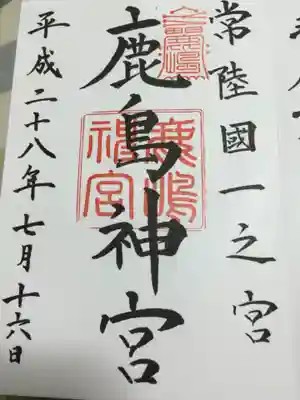 常陸國一之宮
鹿島神宮
鹿嶋神宮
平成二十八年七月十六日